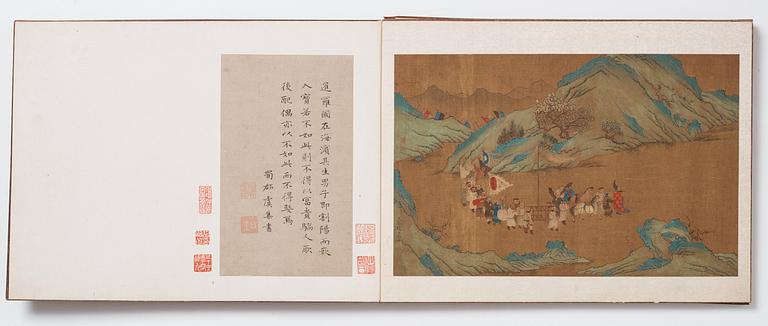 暹羅國在海濱其生男子即割陽而嵌
入寶若不如此則不得以富貴驕人厥
後配偶亦以不如此而不得娶焉
蜀郡虞集書